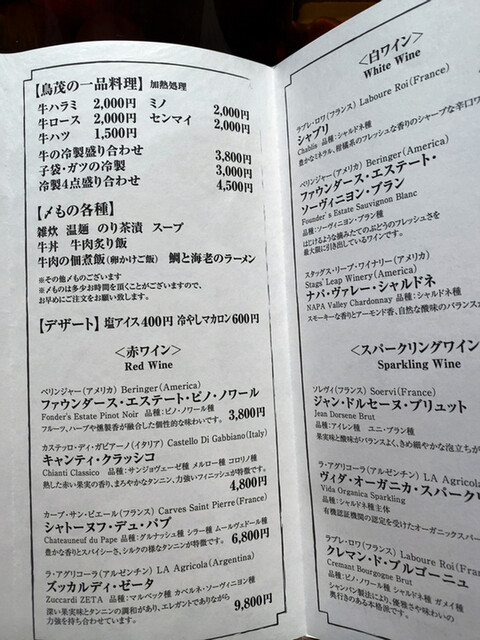 【鳥茂の一品料理】加熱処理
牛ハラミ 2,000円 ミノ 2,000円
牛ロース 2,000円 センマイ 2,000円
牛ハツ 1,500円
牛の冷製盛り合わせ 3,800円
子袋・ガツの冷製 3,000円
冷製4点盛り合わせ 4,500円
【〆もの各種】
雑炊 温麺 のり茶漬 スープ
牛丼 牛肉炙り飯
牛肉の佃煮飯(卵かけご飯) 鯛と海老のラーメン
※その他〆ものございます
※〆ものは多少お時間を頂くことがございますので、
お早めにご注文をお願い致します。
【デザート】塩アイス400円 冷やしマカロン600円
＜赤ワイン＞
Red Wine
ベリンジャー(アメリカ) Beringer(America)
ファウンダース・エステート・ピノ・ノワール
Fonder's Estate Pinot Noir 品種:ピノ・ノワール種
フルーツ、ハーブや燻製香が融合した個性的な味わいです。 3,800円
カステッロ・ディ・ガビアーノ(イタリア) Castello Di Gabbiano(Italy)
キャンティ・クラッシコ
Chianti Classico 品種:サンジョヴェーゼ種 メルロー種 コロリノ種
熟した赤い果実の香り、まろやかなタンニン、力強いフィニッシュが特徴です。
4,800円
カーブ・サン・ピエール(フランス) Carves Saint Pierre(France)
シャトーヌフ・デュ・パプ
Chateauneuf du Pape 品種:グルナッシュ種 シラー種 ムールヴェドール種
豊かな香りとスパイシーさ、シルクの様なタンニンが特徴です。 6,800円
ラ・アグリコーラ(アルゼンチン) LA Agricola(Argentina)
ズッカルディ・ゼータ
Zuccardi ZETA 品種:マルベック種 カベルネ・ソーヴィニヨン種
深い果実味とタンニンの調和があり、エレガントでありながら
力強さを持ち合わせています。 9,800円
＜白ワイン＞
White Wine
ラブレ・ロワ(フランス) Laboure Roi(France)
シャブリ
Chablis 品種:シャルドネ種
豊かなミネラル、柑橘系のフレッシュな香りのシャープな辛口ワ
ベリンジャー(アメリカ) Beringer(America)
ファウンダース・エステート・
ソーヴィニヨン・ブラン
Founder's Estate Sauvignon Blanc
品種:ソーヴィニヨン・ブラン種
はじけるような摘みたてのぶどうのフレッシュさを
最大限に引き出しているワインです。
スタッグス・リープ・ワイナリー(アメリカ)
Stags' Leap Winery(America)
ナパ・ヴァレー・シャルドネ
NAPA Valley Chardonnay 品種:シャルドネ種
スモーキーな香りとアーモンド香、自然な酸味のバランスが
＜スパークリングワイン
Sparkling Wine
ソレヴィ(フランス) Soervi(France)
ジャン・ドルセーヌ・ブリュット
Jean Dorsene Brut
品種:アイレン種 ユニ・ブラン種
果実味と酸味がバランスよく、きめ細やかな泡立ちが
ラ・アグリコーラ(アルゼンチン) LA Agricola
ヴィダ・オーガニカ・スパーク
Vida Organica Sparkling
品種:シャルドネ種主体
有機認証機関の認定を受けたオーガニックスパー
ラブレ・ロワ(フランス) Laboure Roi(Fran
クレマン・ド・ブルゴーニュ
Cremant Bourgogne Brut
品種:ピノ・ノワール種 シャルドネ種 ガメイ種
シャンパン製法により、優雅さや味わいの
奥行きのある本格派です。